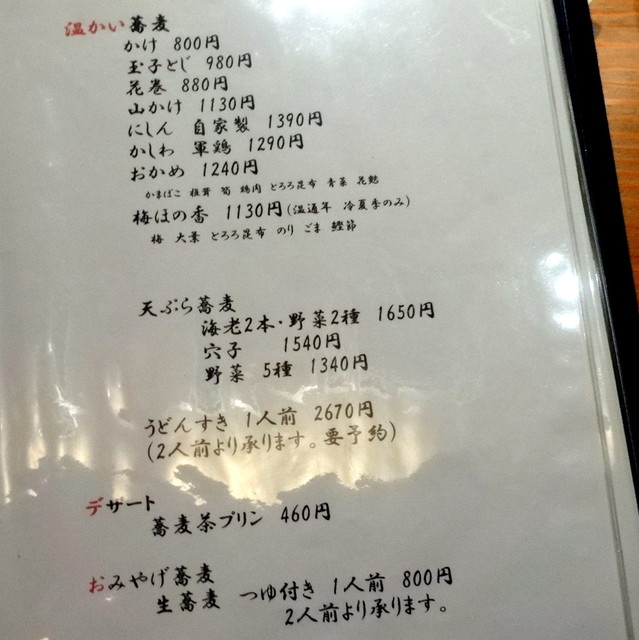 温かい蕎麦
かけ 800円
玉子とじ 980円
花巻 880円
山かけ 1130円
にしん 自家製 1390円
かしわ 軍鶏 1290円
おかめ 1240円
かまぼこ 椎茸 筍 鶏肉 とろろ昆布 青菜 花麩
梅ほの香 1130円(温通年 冷夏季のみ)
梅 大葉 とろろ昆布 のり ごま 鰹節
天ぷら蕎麦
海老2本・野菜2種 1650円
穴子 1540円
野菜 5種 1340円
うどんすき 1人前 2670円
(2人前より承ります。要予約)
デザート
蕎麦茶プリン 460円
おみやげ蕎麦
生蕎麦 つゆ付き 1人前 800円
2人前より承ります。